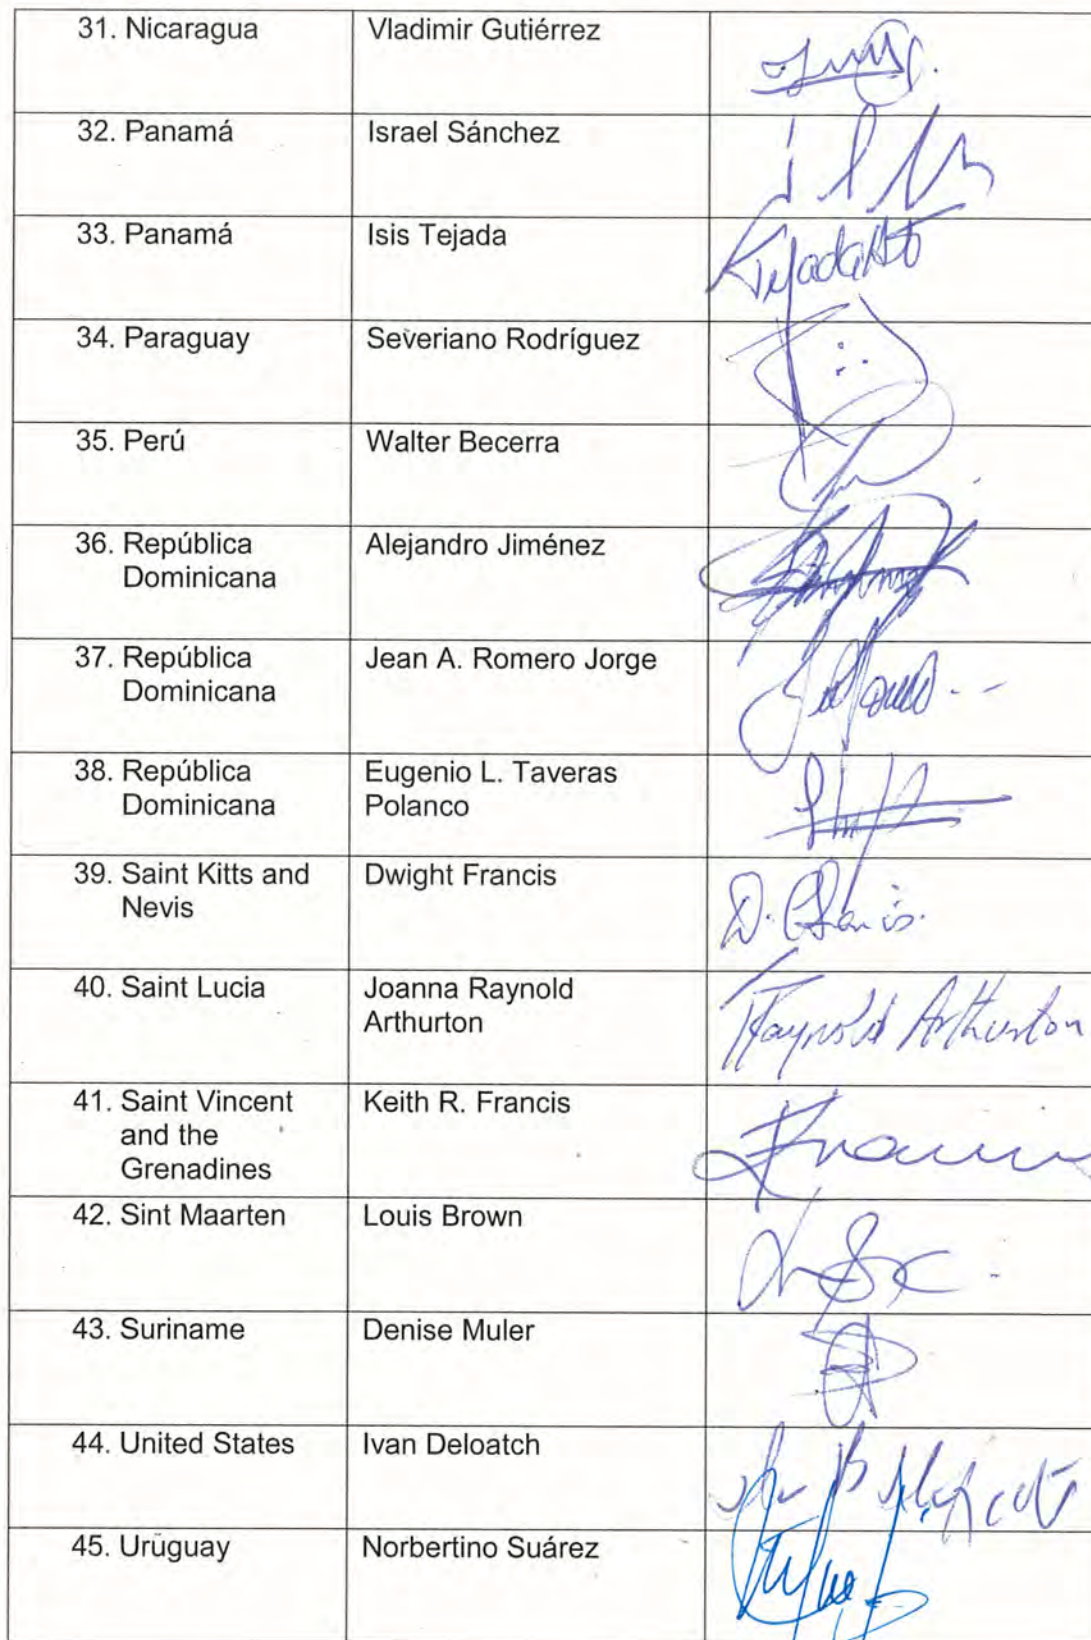 31. Nicaragua
Vladimir Gutiérrez
32. Panamá
Israel Sánchez
33. Panamá
Isis Tejada
34. Paraguay
Severiano Rodríguez
35. Perú
Walter Becerra
36. República
Dominicana
Alejandro Jiménez
37. República
Dominicana
Jean A. Romero Jorge
38. República
Dominicana
Eugenio L. Taveras
Polanco
39. Saint Kitts and
Nevis
Dwight Francis
40. Saint Lucia
Joanna Raynold
Arthurton
Raynold Arthurton
41. Saint Vincent
and the
Grenadines
Keith R. Francis
42. Sint Maarten
Louis Brown
43. Suriname
Denise Muler
44. United States
Ivan Deloatch
45. Uruguay
Norbertino Suárez